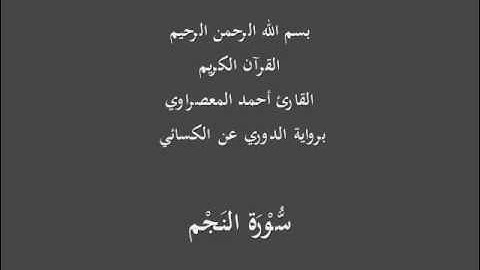 بسم الله الرحمن الرحيم
القرآن الكريم
القارئ أحمد المعصراوي
برواية الدوري عن الكسائي
سُّوْرَة النَجْم